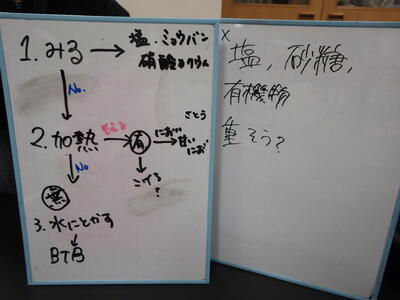 1.みる → 塩・ミョウバン
硝酸カリウム
No.
さとう
2.加熱 → 有 → 甘い
におい
にお
No
こげる
?
無
3.水にとかす
↓
BTB
×
塩, 砂糖,
有機物
重そう?